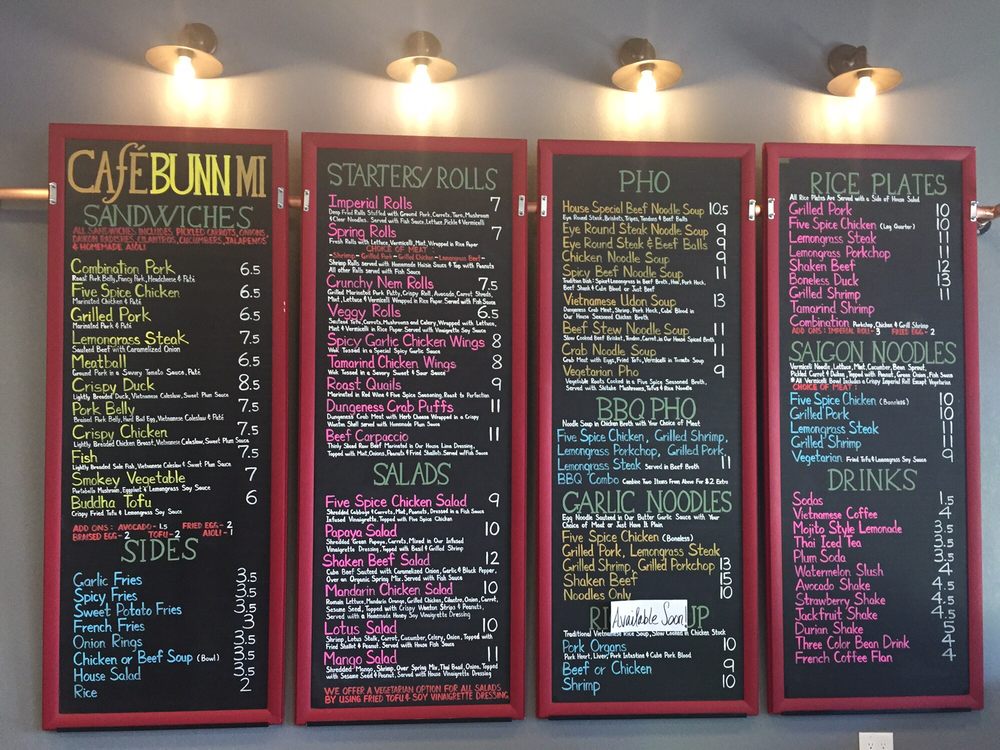 CAFÉ BUNN MI
SANDWICHES
ALL SANDWICHES INCLUDES PICKLED CARROTS, ONIONS,
DAIKON RADISHES, CILANTROS, CUCUMBERS, JALAPENOS
& HOMEMADE AIOLI
Combination Pork 6.5
Roast Pork Belly, Fancy Pork, Headcheese & Paté
Five Spice Chicken 6.5
Marinated Chicken & Paté
Grilled Pork 6.5
Marinated Pork & Paté
Lemongrass Steak 7.5
Sauteed Beef with Caramelized Onion
Meatball 6.5
Ground Pork in a Savory Tomato Sauce, Paté
Crispy Duck 8.5
Lightly Breaded Duck, Vietnamese Coleslaw, Sweet Plum Sauce
Pork Belly 7.5
Braised Pork Belly, Hard Boil Egg, Vietnamese Coleslaw & Paté
Crispy Chicken 7.5
Lightly Breaded Chicken Breast, Vietnamese Coleslaw, Sweet Plum Sauce
Fish 7.5
Lightly Breaded Sole Fish, Vietnamese Coleslaw & Sweet Plum Sauce
Smokey Vegetable 7
Portabella Mushroom, Eggplant & Lemongrass Soy Sauce
Buddha Tofu 6
Crispy Fried Tofu & Lemongrass Soy Sauce
ADD ONS: AVOCADO- 1.5 FRIED EGG- 2
BRAISED EGG- 2 TOFU- 2 AIOLI- 1
SIDES
Garlic Fries 3.5
Spicy Fries 3.5
Sweet Potato Fries 3.5
French Fries 3
Onion Rings 3.5
Chicken or Beef Soup (Bowl) 3.5
House Salad 3.5
Rice 2
STARTERS/ROLLS
Imperial Rolls 7
Deep Fried Rolls Stuffed with Ground Pork, Carrots, Taro, Mushroom
& Clear Noodles. Served with Fish Sauce, Lettuce Pickle & Vermicelli
Spring Rolls 7
Fresh Rolls with Lettuce, Vermicelli, Mint, Wrapped in Rice Paper
CHOICE OF MEAT:
Shrimp - Grilled Pork - Grilled Chicken - Lemongrass Beef
Shrimp Rolls Served with Homemade Hoisin Sauce & Top with Peanuts
All other Rolls served with Fish Sauce
Crunchy Nem Rolls 7.5
Grilled Marinated Pork Patty, Crispy Roll, Avocado, Carrot Shreds,
Mint, Lettuce & Vermicelli Wrapped in Rice Paper Served with Fish Sauce
Veggy Rolls 6.5
Sauteed Tofu, Carrots, Mushrooms and Celery, Wrapped with Lettuce,
Mint & Vermicelli in Rice Paper. Served with Vinaigrette Soy Sauce
Spicy Garlic Chicken Wings 8
Wok Tossed in a Special Spicy Garlic Sauce
Tamarind Chicken Wings 8
Wok Tossed in a Savory Sweet & Sour Sauce
Roast Quails 9
Marinated in Red Wine & Five Spice Seasoning, Roast to Perfection
Dungeness Crab Puffs 11
Dungeness Crab Meat with Herb Cheese Wrapped in a Crispy
Wonton Shell Served with Homemade Plum Sauce
Beef Carpaccio 11
Thinly Sliced Raw Beef Marinated in Our House Lime Dressing,
Topped with Mint, Onions, Peanuts & Fried Shallots Served w/Fish Sauce
SALADS
Five Spice Chicken Salad 9
Shredded Cabbage & Carrots, Mint, Peanuts, Dressed in a Fish Sauce
Infused Vinaigrette, Topped with Five Spice Chicken
Papaya Salad 10
Shredded Green Papaya, Carrots, Mixed in Our Infused
Vinaigrette Dressing, Topped with Basil & Grilled Shrimp
Shaken Beef Salad 12
Cube Beef Sauteed with Caramelized Onion, Garlic & Black Pepper,
Over an Organic Spring Mix. Served with Fish Sauce
Mandarin Chicken Salad 10
Romain Lettuce, Mandarin Orange, Grilled Chicken, Cilantro, Onion, Carrot,
Sesame Seed, Topped with Crispy Wonton Strips & Peanuts,
Served with a Homemade Honey Soy Vinaigrette Dressing
Lotus Salad 10
Shrimp, Lotus Stalk, Carrot, Cucumber, Celery, Onion, Topped with
Fried Shallot & Peanut. Served with House Fish Sauce
Mango Salad 11
Shredded Mango, Shrimp, Over Spring Mix, Thai Basil, Onion, Topped
with Sesame Seed & Peanut, Served with House Vinaigrette Dressing
WE OFFER A VEGETARIAN OPTION FOR ALL SALADS
BY USING FRIED TOFU & SOY VINAIGRETTE DRESSING
PHO
House Special Beef Noodle Soup 10.5
Eye Round Steak, Brisket, Tripe, Tendon & Beef Balls
Eye Round Steak Noodle Soup 9
Eye Round Steak & Beef Balls 9
Chicken Noodle Soup 9
Spicy Beef Noodle Soup 11
Tradition Dish: Spice+Lemongrass in Beef Broth, Ham, Pork Hock,
Beef Shank & Cube Blood or Just Beef
Vietnamese Udon Soup 13
Dungeness Crab Meat, Shrimp, Pork Hock, Cube Blood in
Our House Seasoned Chicken Broth
Beef Stew Noodle Soup 11
Slow Cooked Beef Brisket, Tendon, Carrot, in Our House Spiced Broth
Crab Noodle Soup 11
Crab Meat with Eggs, Fried Tofu, Vermicelli in Tomato Soup
Vegetarian Pho 9
Vegetable Roots Cooked in a Five Spice Seasoned Broth,
Served with Shitake Mushrooms, Tofu & Rice Noodle
BBQ PHO
Noodle Soup in Chicken Broth with Your Choice of Meat
Five Spice Chicken, Grilled Shrimp,
Lemongrass Porkchop, Grilled Pork,
Lemongrass Steak Served in Beef Broth 11
BBQ Combo Combine Two Items From Above For $2 Extra
GARLIC NOODLES
Egg Noodle Sauteed in Our Butter Garlic Sauce with Your
Choice of Meat or Just Have It Plain
Five Spice Chicken (Boneless)
Grilled Pork, Lemongrass Steak
Grilled Shrimp, Grilled Porkchop 13
Shaken Beef 15
Noodles Only 10
RI UP
Available Soon!
Traditional Vietnamese Rice Soup, Slow Cooked in Chicken Stock
Pork Organs 10
Pork Heart, Liver, Pork Intestine & Cube Pork Blood
Beef or Chicken 9
Shrimp 10
RICE PLATES
All Rice Plates Are Served with a Side of House Salad
Grilled Pork 10
Five Spice Chicken (Leg Quarter) 10
Lemongrass Steak 11
Lemongrass Porkchop 11
Shaken Beef 12
Boneless Duck 13
Grilled Shrimp 11
Tamarind Shrimp
Combination Porkchop, Chicken & Grill Shrimp
ADD ONS: IMPERIAL ROLL- 3 FRIED EGG- 2
SAIGON NOODLES
Vermicelli Noodle, Lettuce, Mint, Cucumber, Bean Sprout,
Pickled Carrot & Daikon, Topped with Peanut, Green Onion, Fish Sauce
* All Vermicelli Bowl Includes a Crispy Imperial Roll Except Vegetarian
CHOICE OF MEAT:
Five Spice Chicken (Boneless) 10
Grilled Pork 10
Lemongrass Steak 11
Grilled Shrimp 11
Vegetarian Fried Tofu & Lemongrass Soy Sauce 9
DRINKS
Sodas 1.5
Vietnamese Coffee 4
Mojito Style Lemonade 3.5
Thai Iced Tea 3.5
Plum Soda 3.5
Watermelon Slush 4
Avocado Shake 4.5
Strawberry Shake 4.5
Jackfruit Shake 4.5
Durian Shake
Three Color Bean Drink 4
French Coffee Flan 4